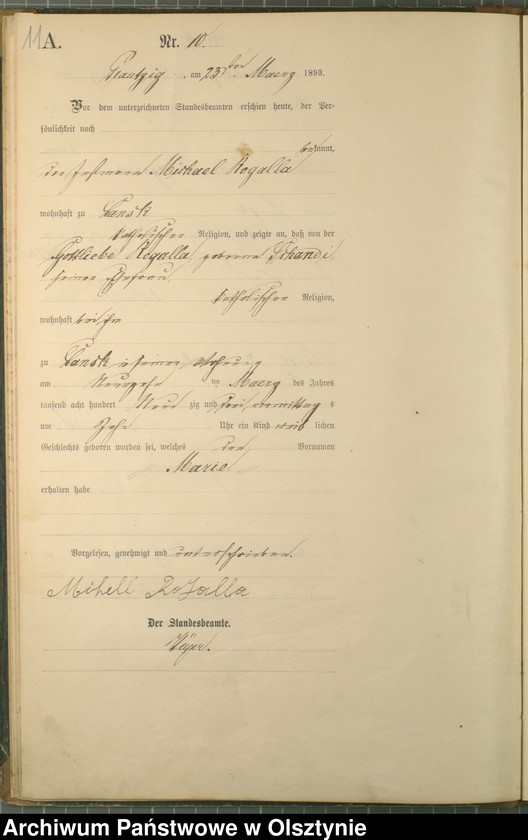 11 A. Nr. 10.
Grautzig am 23ten Maerz 1893.
Vor dem unterzeichneten Standesbeamten erschien heute, der Per-
sönlichkeit nach
bekannt,
der Michael Rogalla
wohnhaft zu Lansk
katholischer Religion, und zeigte an, daß von der
Gottliebe Rogalla, geborene
seiner Ehefrau
katholischer Religion,
wohnhaft bei ihm
zu Lansk in seiner Wohnung
am ten Maerz des Jahres
tausend acht hundert Neun zig und drei, vormittag s
um Zehn Uhr ein Kind weib lichen
Geschlechts geboren worden sei, welches den Vornamen
Marie
erhalten habe
Vorgelesen, genehmigt und unterschrieben.
Mihell Rogalla
Der Standesbeamte.
Archiwum Państwowe w Olsztynie